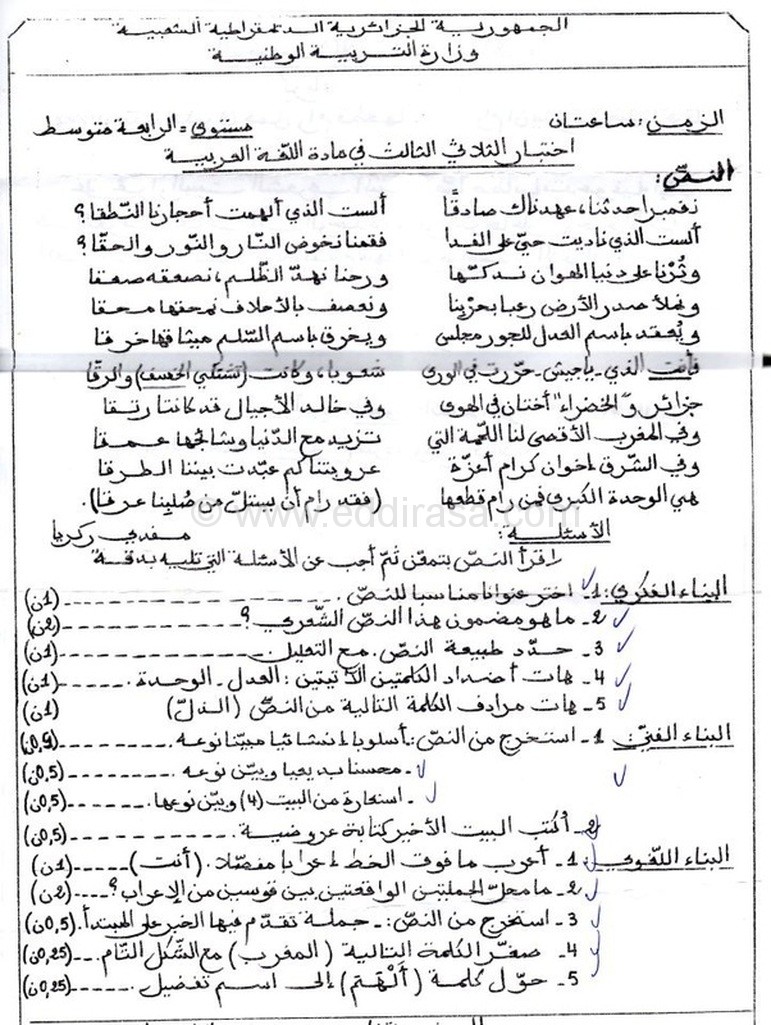 الجمهورية الجزائرية الديمقراطية الشعبية
وزارة التربية الوطنية
الزمن: ساعتان    مستوى: الرابعة متوسط
اختبار الثلاثي الثالث في مادة اللغة العربية
النصّ:
نفمبر احدثنا، عهدناك صادقًا    ألست الذي ألهمت أحجارنا النّطقا؟
ألست الذي ناديت حيّ على الفدا    فقمنا نخوض النّار والنّور والحقّا؟
وثُرْنا على دنيا الهوان ندكّها    ورحنا نهدّ الظّلم، نصعقه صعقا
ونملأ صدر الأرض رعبا بحزبنا    ونعصف بالأحلاف نمحقها محقا
ويُعقد باسم العدل للجور مجلس    ويخرق باسم السّلم ميثاقها خرقا
فأنت الذي - ياجيش - حرّرت في الورى    شعوبا، وكانت (تشتكي الخسف) والرقّا
جزائر و"الخضراء" أختان في الهوى    وفي خالد الأجيال قد كانتا رتقا
وفي المغرب الأقصى لنا اللّحمة التي    تزيد مع الدّنيا وشائجها عمقا
وفي الشّرق إخوان كرام أعزّة    عروبتنا كم عبّدت بيننا الطرقا
هي الوحدة الكبرى فمن رام قطعها    (فقد رام أن يستلّ من صُلبِنا عرقا).
© www.eddirasa.com
الأسئلة:    مفدي زكريا
اقرأ النصّ بتمعّن ثمّ أجب عن الأسئلة التي تليه بدقة
البناء الفكري: 1- اختر عنوانا مناسبا للنصّ. (1ن)
2- ما هو مضمون هذا النصّ الشّعري؟ (2ن)
3- حدّد طبيعة النصّ. مع التعليل. (1ن)
4- هات أضداد الكلمتين الآتيتين: العدل - الوحدة. (1ن)
5- هات مرادف الكلمة التالية من النصّ (الذلّ) (1ن)
البناء الفنّي: 1- استخرج من النصّ: أسلوبا إنشائيا مبيّنا نوعه. (0,5ن)
- محسنا بديعيا وبيّن نوعه. (0,5ن)
- استعارة من البيت (4) وبيّن نوعها. (0,5ن)
2- أكتب البيت الأخير كتابة عروضية. (0,5ن)
البناء اللّغوي: 1- أعرب ما فوق الخط إعرابا مفصّلا. (أنت) (1ن)
2- ما محلّ الجملتين الواقعتين بين قوسين من الإعراب؟ (2ن)
3- استخرج من النصّ: - جملة تقدّم فيها الخبر على المبتدأ. (0,5ن)
4- صغّر الكلمة التالية (المغرب) مع الشّكل التّام. (0,25ن)
5- حوّل كلمة (أَلْهَمَ) إلى اسم تفضيل. (0,25ن)